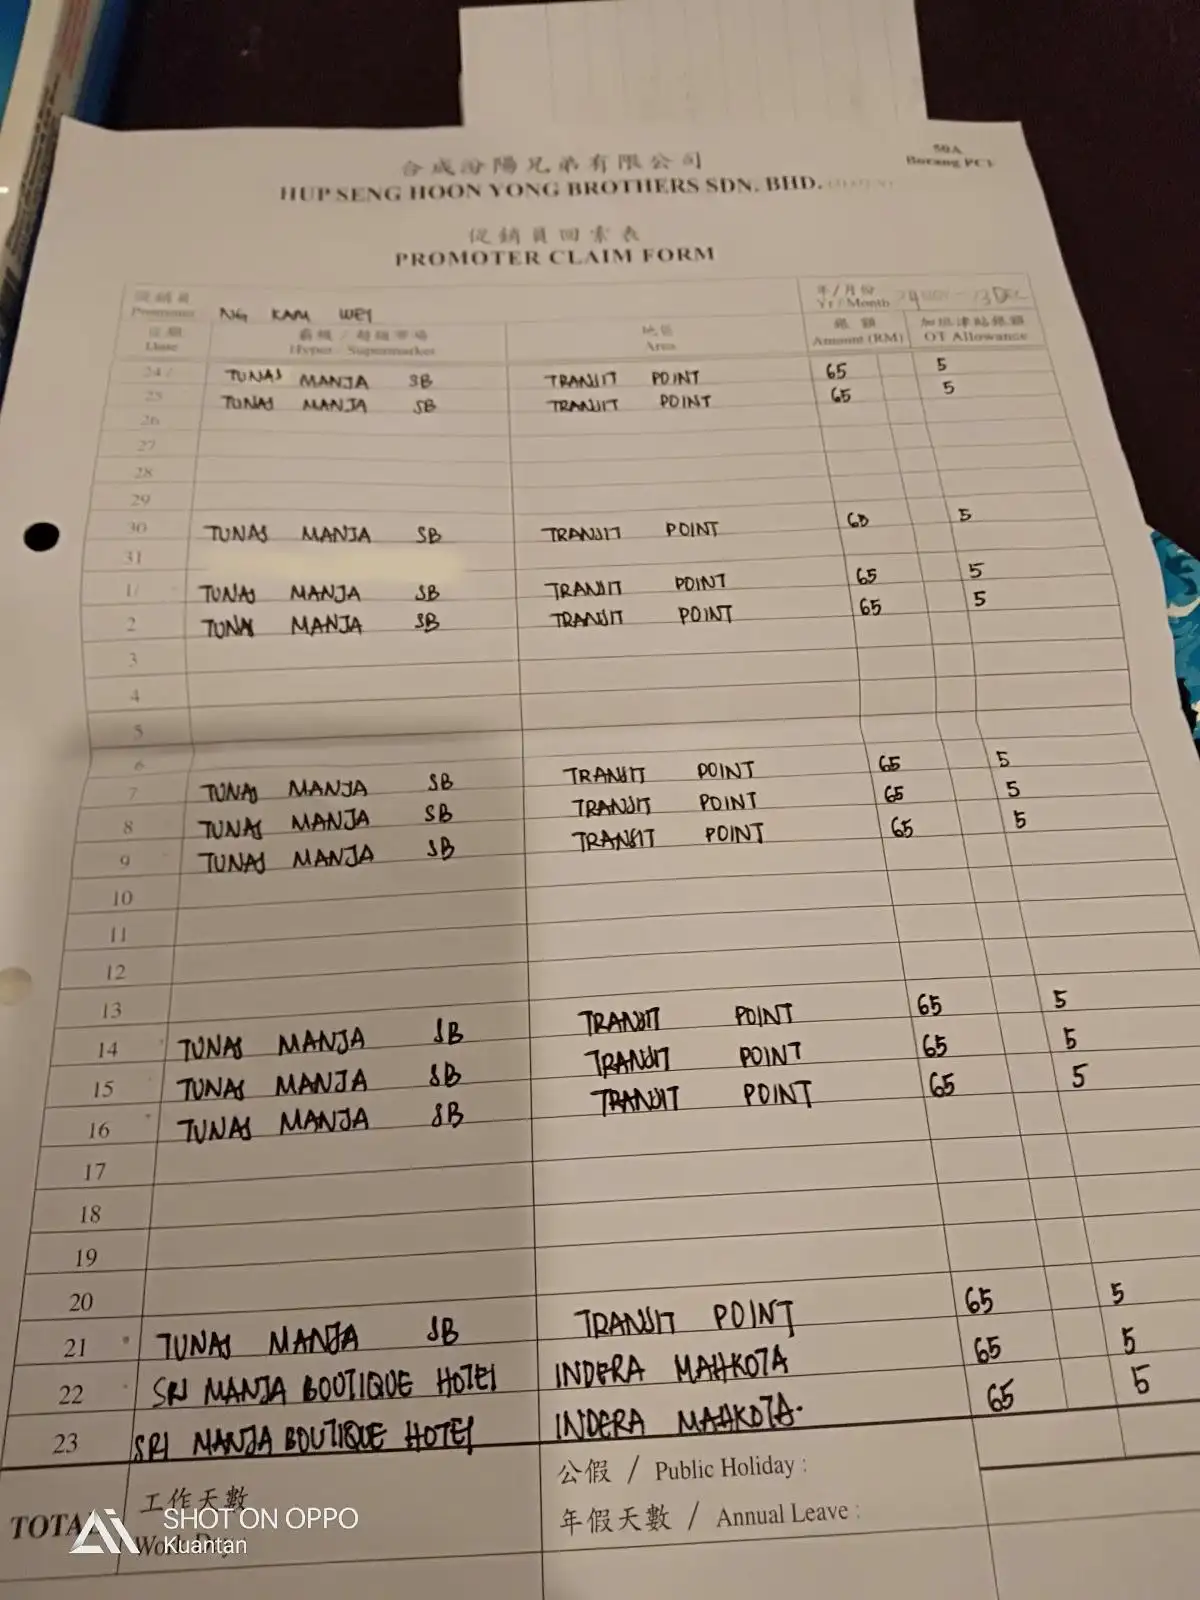 50A
Borang PC1
合成汾陽兄弟有限公司
HUP SENG HOON YONG BROTHERS SDN. BHD.
促銷員回索表
PROMOTER CLAIM FORM
促銷員
Promoter NG KAM WEY
年/月份
Yr / Month
日期 Date
Hyper / Supermarket
地區 Area
銀額 Amount (RM)
加班津貼銀額 OT Allowance
24 TUNAS MANJA SB TRANSIT POINT 65 5
25 TUNAS MANJA SB TRANSIT POINT 65 5
26
27
28
29
30 TUNAS MANJA SB TRANSIT POINT 5
31
1 TUNAS MANJA SB TRANSIT POINT 65 5
2 TUNAS MANJA SB TRANSIT POINT 65 5
3
4
5
6
7 TUNAS MANJA SB TRANSIT POINT 65 5
8 TUNAS MANJA SB TRANSIT POINT 65 5
9 TUNAS MANJA SB TRANSIT POINT 65 5
10
11
12
13
14 TUNAS MANJA SB TRANSIT POINT 65 5
15 TUNAS MANJA SB TRANSIT POINT 65 5
16 TUNAS MANJA SB TRANSIT POINT 65 5
17
18
19
20
21 TUNAS MANJA SB TRANSIT POINT 65 5
22 SRI MANJA BOUTIQUE HOTEL INDERA MAHKOTA 65 5
23 SRI MANJA BOUTIQUE HOTEL INDERA MAHKOTA. 65 5
TOTAL
工作天數
Work Days
公假 / Public Holiday :
年假天數 / Annual Leave :
SHOT ON OPPO
Kuantan